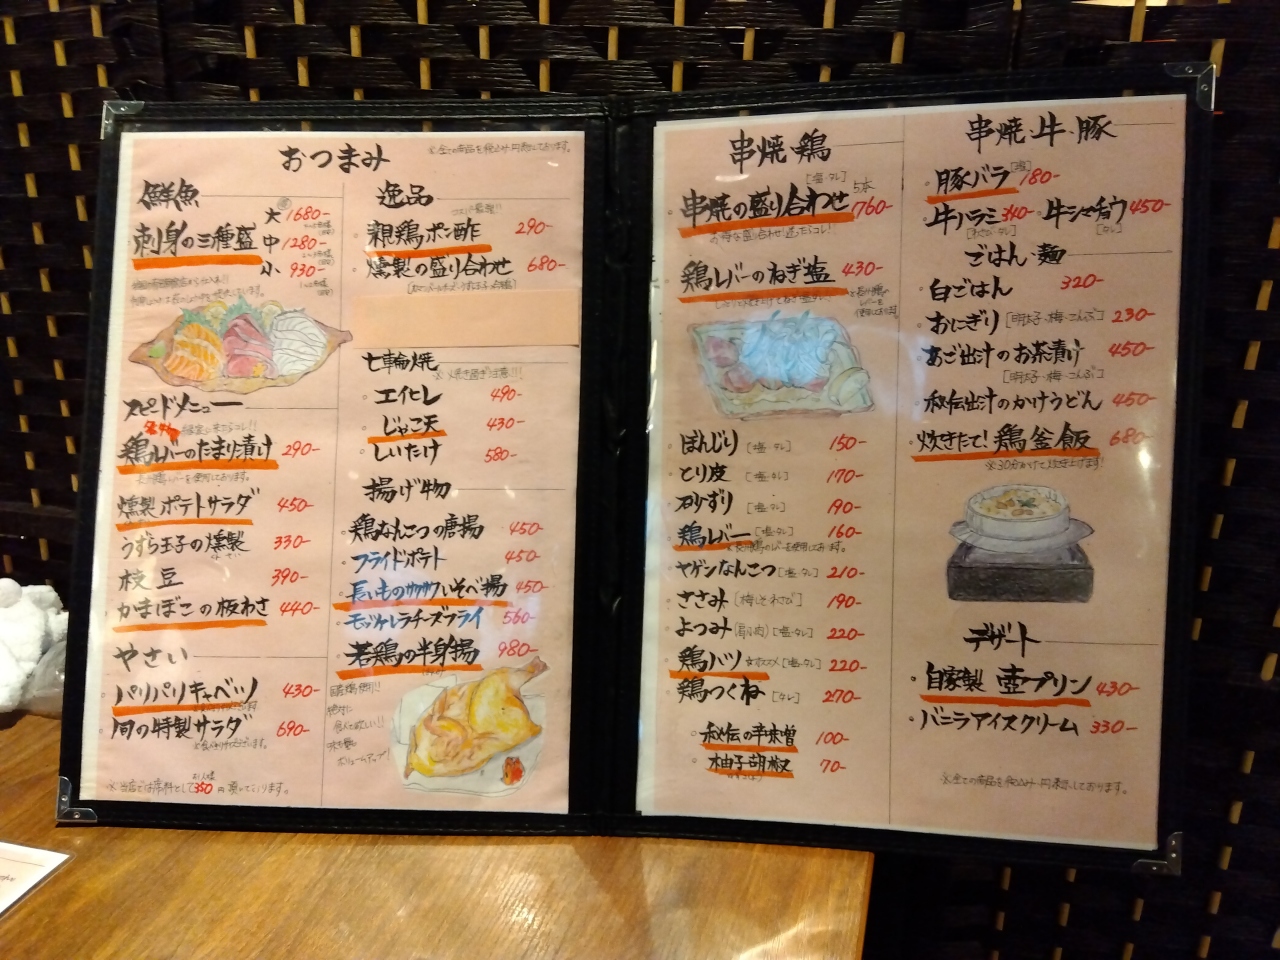 おつまみ
※全ての商品を税込み円表示しております。
鮮魚
刺身の三種盛
大 1680-
中 1280-
小 930-
スピードメニュー
鶏レバーのたまり漬け 290-
燻製ポテトサラダ 450-
うずら玉子の燻製 330-
枝豆 390-
かまぼこの板わさ 440-
やさい
パリパリキャベツ 430-
旬の特製サラダ 690-
※当店では席料としてお1人様350円頂いております。
逸品
親鶏ポン酢 290-
燻製の盛り合わせ 680-
七輪焼
※焼き過ぎ注意!!!
エイヒレ 490-
じゃこ天 430-
しいたけ 580-
揚げ物
鶏なんこつの唐揚 450-
フライドポテト 450-
長いものサクサクいそべ揚 450-
モッツァレラチーズフライ 560-
若鶏の半身揚 980-
絶対に
食べて欲しい!!
ボリュームアップ!
串焼・鶏
[塩・タレ]
串焼の盛り合わせ 5本 760-
鶏レバーのねぎ塩 430-
ぼんじり [塩・タレ] 150-
とり皮 [塩・タレ] 170-
砂ずり [塩・タレ] 190-
鶏レバー [塩・タレ] 160-
※長州鶏のレバーを使用しております。
ヤゲンなんこつ [塩・タレ] 210-
ささみ [梅しそ・わさび] 190-
よつみ (肩小肉) [塩・タレ] 220-
鶏ハツ ☆オススメ [塩・タレ] 220-
鶏つくね [タレ] 270-
秘伝の辛味噌 100-
柚子胡椒 70-
串焼・牛・豚
豚バラ [塩] 180-
牛ハラミ 340- 牛シマチョウ 450-
[わさび・タレ] [タレ]
ごはん・麺
白ごはん 320-
おにぎり [明太子・梅・こんぶ] 230-
あご出汁のお茶漬け 450-
[明太子・梅・こんぶ]
秘伝出汁のかけうどん 450-
炊きたて!鶏釜飯 680-
※30分かけて炊き上げます!
デザート
自家製 壺プリン 430-
バニラアイスクリーム 330-
※全ての商品を税込み円表示しております。